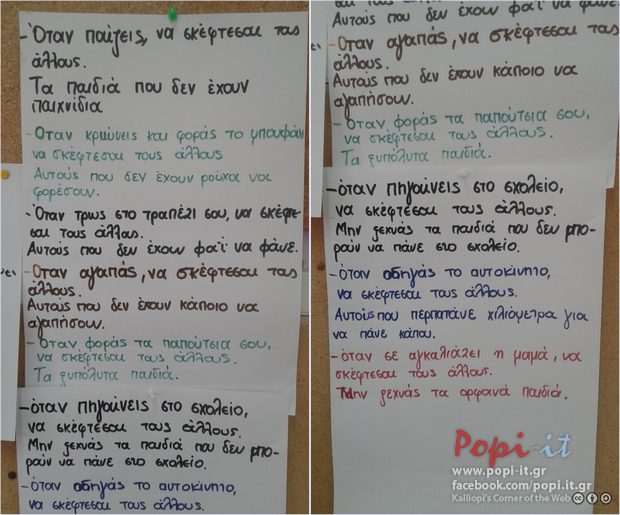 -Όταν παίζεις, να σκέφτεσαι τους
άλλους.
Τα παιδιά που δεν έχουν
παιχνίδια
-Όταν κρυώνεις και φοράς το μπουφάν
να σκέφτεσαι τους άλλους
Αυτούς που δεν έχουν ρούχα να
φορέσουν.
-Όταν τρως στο τραπέζι σου, να σκέφτε-
σαι τους άλλους.
Αυτούς που δεν έχουν φαΐ να φάνε.
-Όταν αγαπάς, να σκέφτεσαι τους
άλλους.
Αυτούς που δεν έχουν κάποιο να
αγαπήσουν.
-Όταν φοράς τα παπούτσια σου,
να σκέφτεσαι τους άλλους.
Τα ξυπόλυτα παιδιά.
-όταν πηγαίνεις στο σχολείο,
να σκέφτεσαι τους άλλους.
Μην ξεχνάς τα παιδιά που δεν μπο-
ρούν να πάνε στο σχολείο.
-όταν οδηγάς το αυτοκίνητο,
να σκέφτεσαι τους άλλους.
Αυτούς που δεν έχουν φαΐ να φάνε.
-Όταν αγαπάς, να σκέφτεσαι τους
άλλους.
Αυτούς που δεν έχουν κάποιο να
αγαπήσουν.
-Όταν φοράς τα παπούτσια σου,
να σκέφτεσαι τους άλλους.
Τα ξυπόλυτα παιδιά.
-όταν πηγαίνεις στο σχολείο,
να σκέφτεσαι τους άλλους.
Μην ξεχνάς τα παιδιά που δεν μπο-
ρούν να πάνε στο σχολείο.
-όταν οδηγάς το αυτοκίνητο,
να σκέφτεσαι τους άλλους.
Αυτούς που περπατάνε χιλιόμετρα για
να πάνε κάπου.
-όταν σε αγκαλιάζει η μαμά, να
σκέφτεσαι τους άλλους.
Μην ξεχνάς τα ορφανά παιδιά.
Popi-it
www.popi-it.gr
facebook.com/popi.it.gr
Kalliopi's Corner of the Web